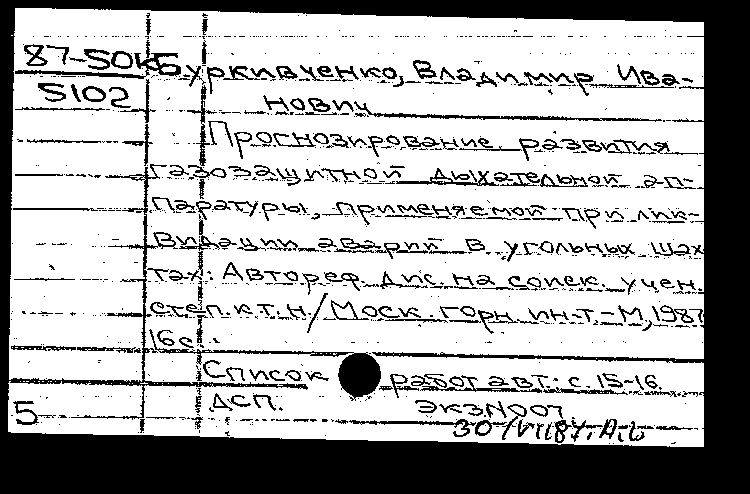 87-5ОК Буркивченко, Владимир Ива-
5102 нович
Прогнозирование развития
газозащитной дыхательной ап-
паратуры, применяемой при лик-
видации аварий в угольных шах
тах: Автореф. дис. на соиск. учен.
степ. к.т.н/Моск. горн. ин-т.-М,1987
16с.
Список работ авт.: с. 15-16.
ДСП. экз№001
5